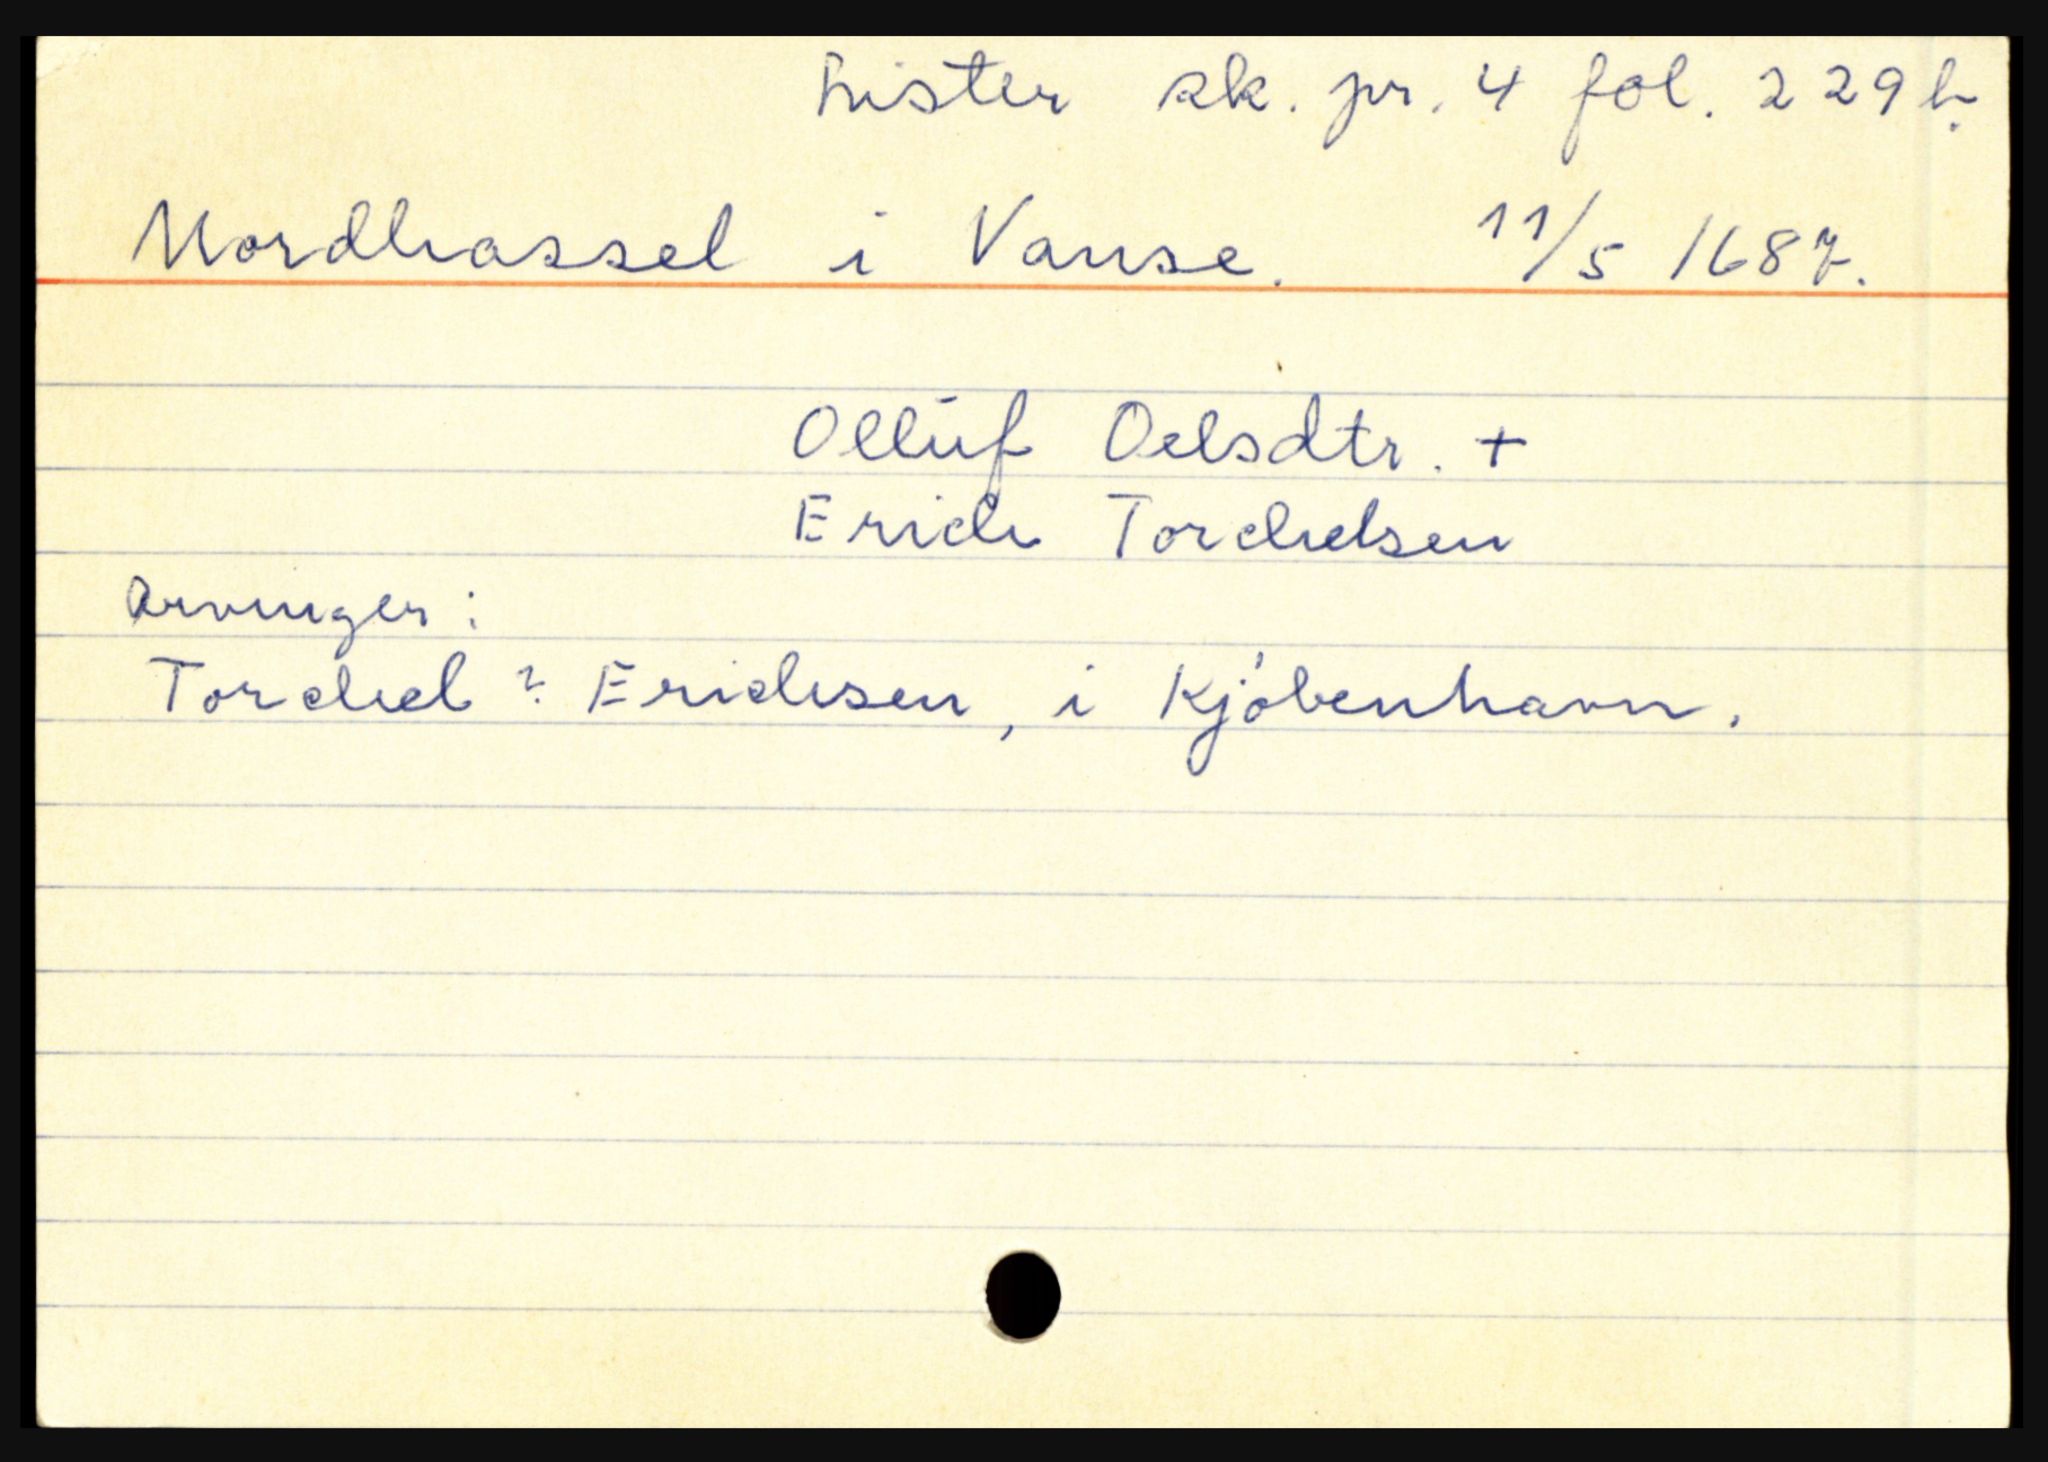 Lister sk. pr. 4 fol. 229 b.
Nordhassel i Vanse. 11/5 1687.
Ollúf Oelsdtr. +
Erich Torchelsen
Arvinger:
Torchel? Erichsen, i Kjóbenhavn.